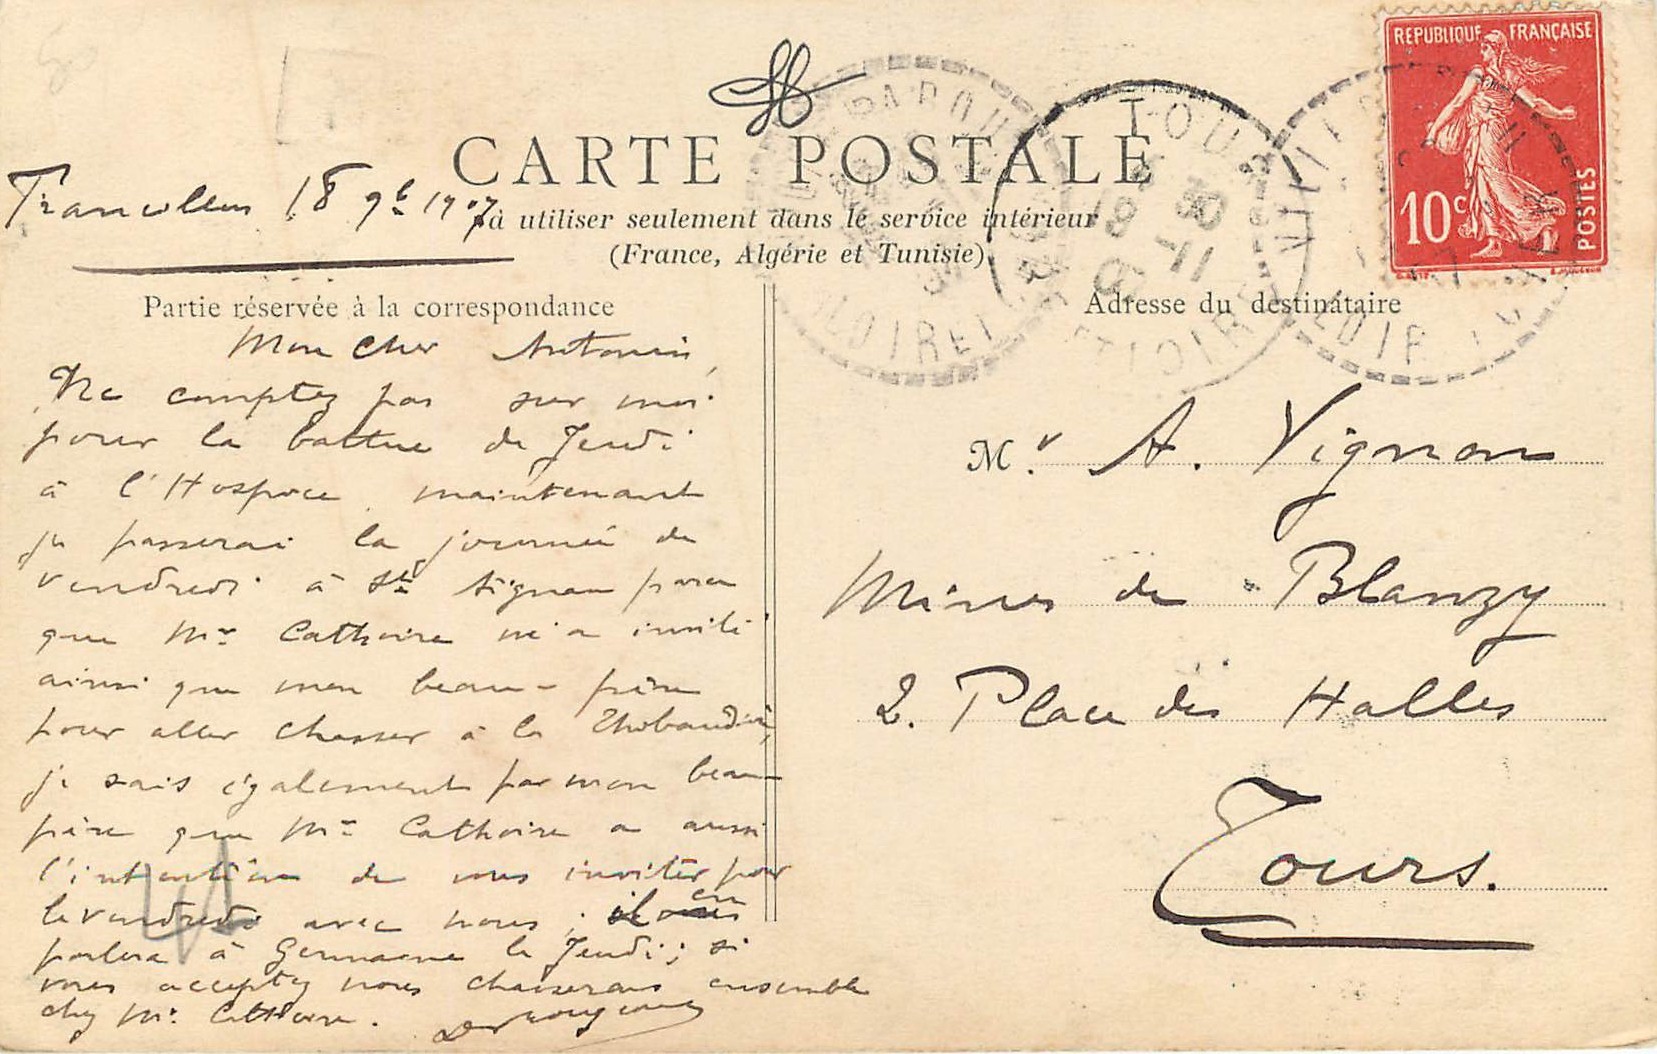 REPUBLIQUE FRANÇAISE
10c
POSTES
CARTE POSTALE
18 9b 1907
à utiliser seulement dans le service intérieur
(France, Algérie et Tunisie)
Partie réservée à la correspondance
Mon cher Antonin,
Ne comptez pas sur moi
pour la battue de Jeudi
à l'Hospice maintenant
je passerai la journée de
vendredi à St Aignan parce
que Mr Cathoire m'a invité
ainsi que mon beau-père
pour aller chasser à la
je sais également par mon beau-
père que Mr Cathoire a aussi
l'intention de vous inviter pour
le vendredi avec nous ; il en
parlera à Germaine le Jeudi ; si
vous acceptez nous chasserons ensemble
chez Mr. Cathoire.
Adresse du destinataire
Mr. A. Vignon
Mines de Blanzy
2. Place des Halles
Tours.